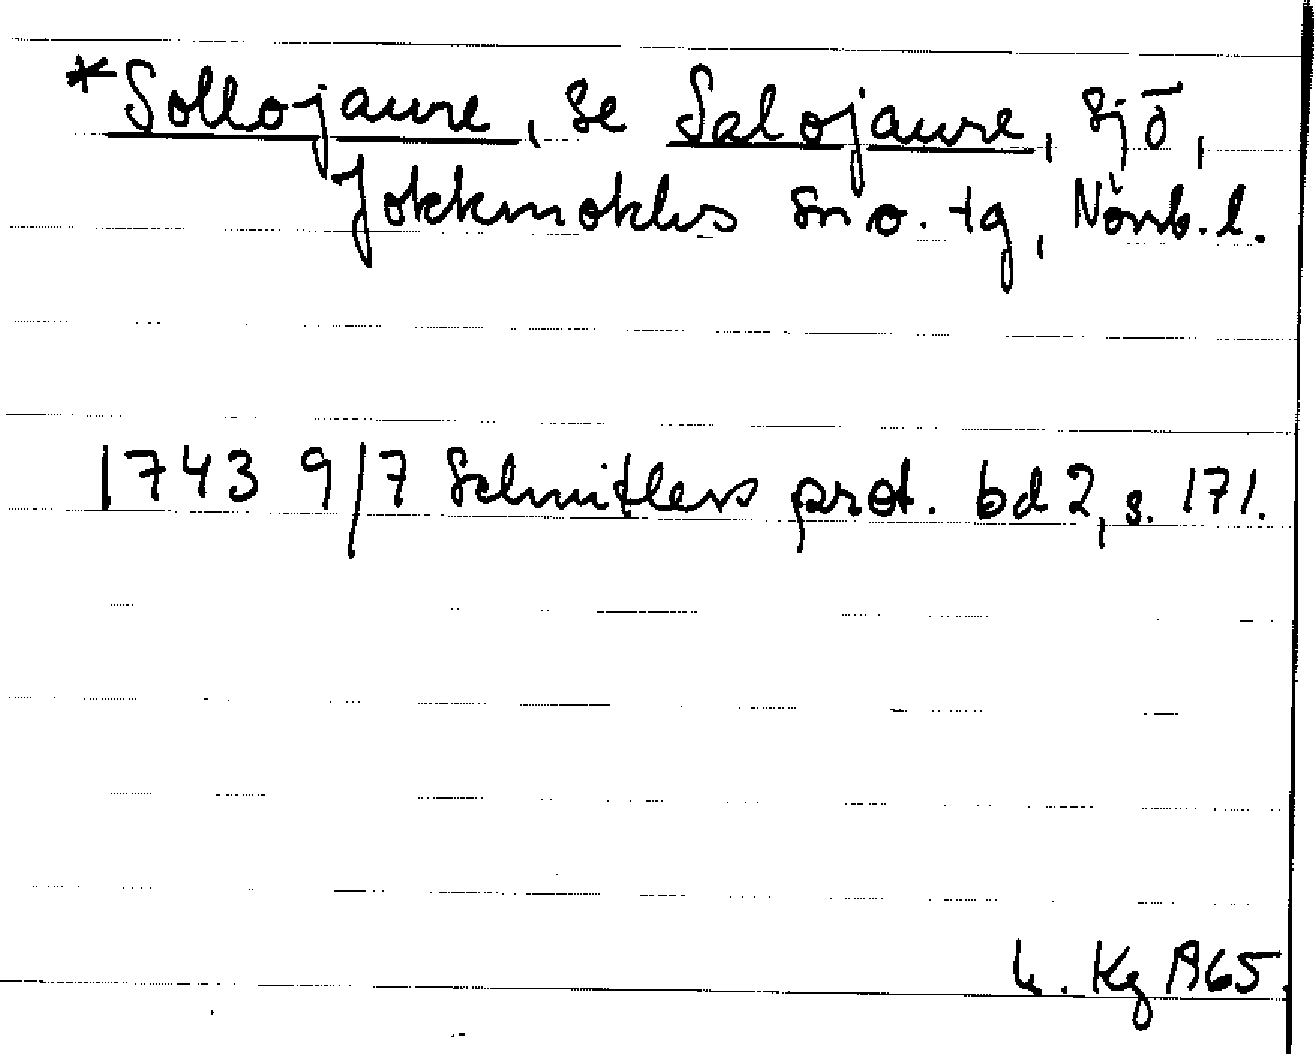 *Sollojaure, se Salojaure, sjö,
Jokkmokks sn o. tg, Norrb. l.
1743 9/7 Schnitlers prot. bd 2, s. 171.
Kg 1965.